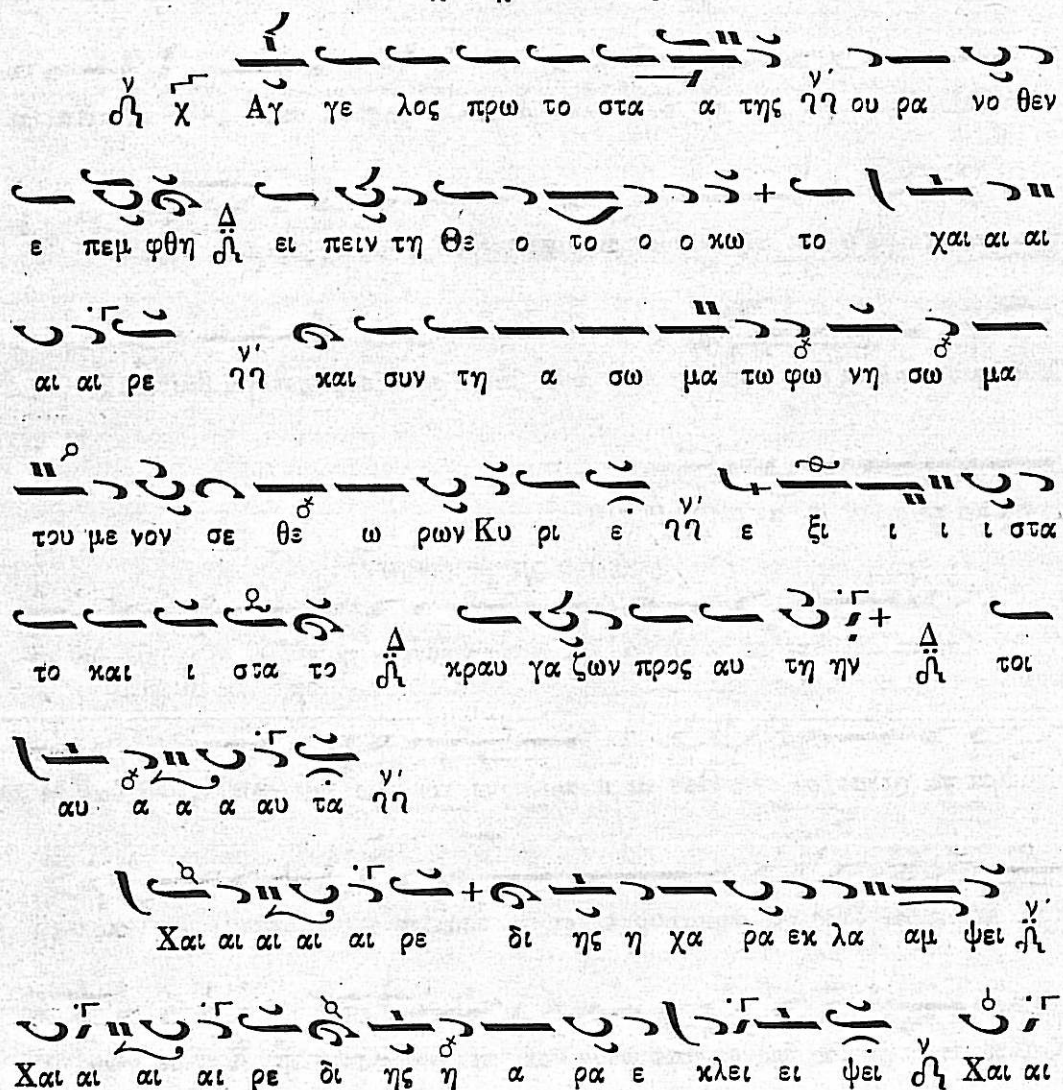 Αγ γε λος πρω το στα α της ου ρα νο θεν
ε πεμ φθη ει πειν τη Θε ο το ο ο κω το χαι αι αι
αι αι ρε και συν τη α σω μα τω φω νη σω μα
του με νον σε θε ω ρων Κυ ρι ε ε ξι ι ι ι στα
το και ι στα το κραυ γα ζων προς αυ τη ην τοι
αυ α α α αυ τα
Χαι αι αι αι αι ρε δι ης η χα ρα εκ λα αμ ψει
Χαι αι αι αι ρε δι ης η α ρα ε κλει ει ψει Χαι αι